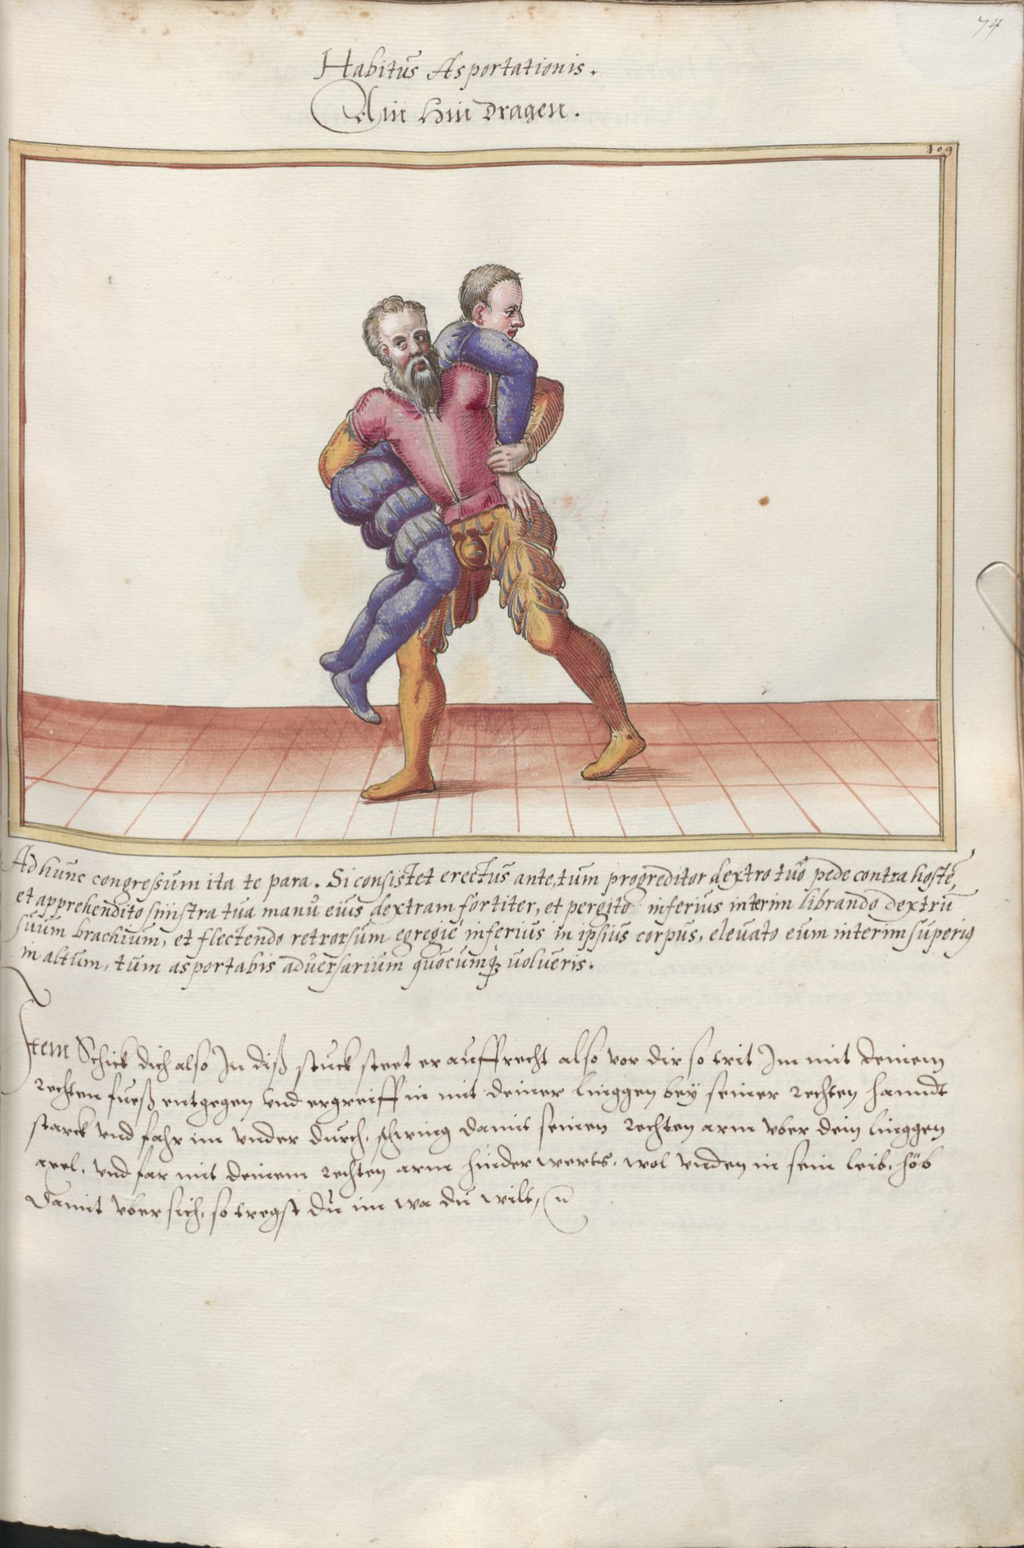 74
Habitus Asportationis.
Ain hin dragen.
109
Ad hunc congressum ita te para. Si consistet erectus ante, tum progreditor dextro tuo pede contra hostē,
et apprehendito sinistra tua manu eius dextram fortiter, et pergito inferius interim librando dextrū
suum brachium, et flectendo retrorsum egregie inferius in ipsius corpus, eleuato eum interim superiꝯ
in altum, tum asportabis aduersarium quocumq; uolueris.
Item Schick dich also In diß stuck steet er auffrecht also vor dir so trit Im mit deinem
rechten fueß entgegen vnd ergreiff in mit deiner linggen bey seiner rechten hanndt
starck vnd fahr im vnder durch, schwing damit seinen rechten arm vber dein linggen
axel, vnd far mit deinem rechten arm hinderwerts, wol vnden in sein leib, höb
damit vbersich, so tregst du im wa du wilt,